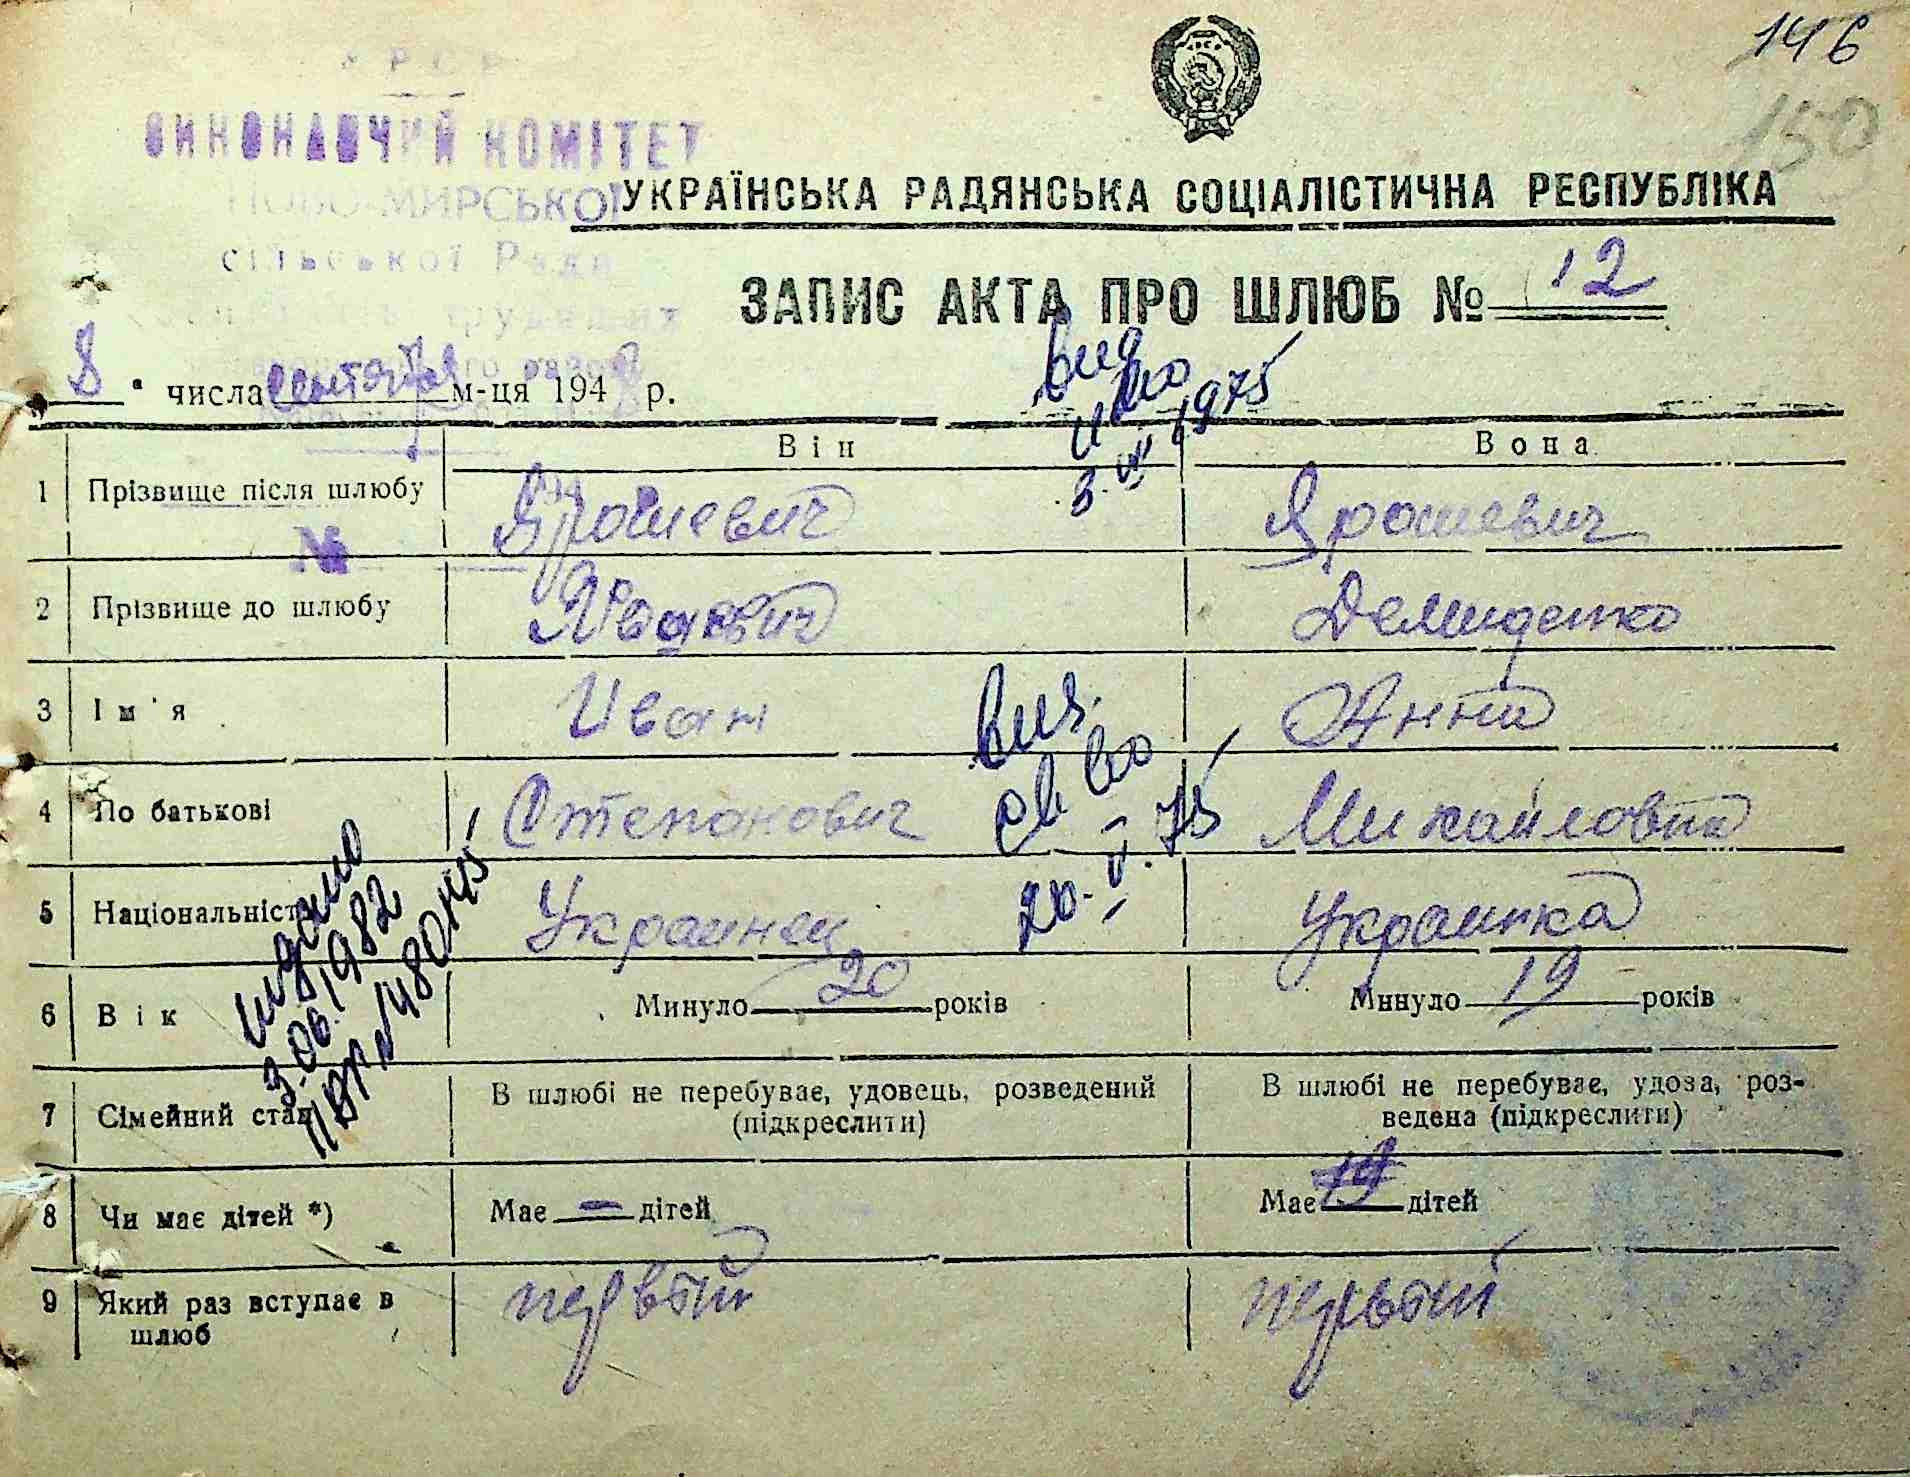 146
150
УРСР
ВИКОНАВЧИЙ КОМІТЕТ
НОВО-МИРСЬКОЇ
сільської Ради
УКРАЇНСЬКА РАДЯНСЬКА СОЦІАЛІСТИЧНА РЕСПУБЛІКА
ЗАПИС АКТА ПРО ШЛЮБ № 12
8 " числа сентября м-ця 1948 р.
Він Вона
1 Прізвище після шлюбу Ярошевич Ярошевич
№
2 Прізвище до шлюбу Демиденко
3 Ім'я Иван Анна
4 По батькові Степанович Михайловна
5 Національність Украинец Украинка
6 Вік Минуло 20 років Минуло 19 років
7 Сімейний стан В шлюбі не перебуває, удовець, розведений (підкреслити) В шлюбі не перебуває, удова, роз-
ведена (підкреслити)
8 Чи має дітей *) Має — дітей Має 19 дітей
9 Який раз вступає в первый первый
шлюб
3. VI 1975
20. V. 75
видано
3.06.1982